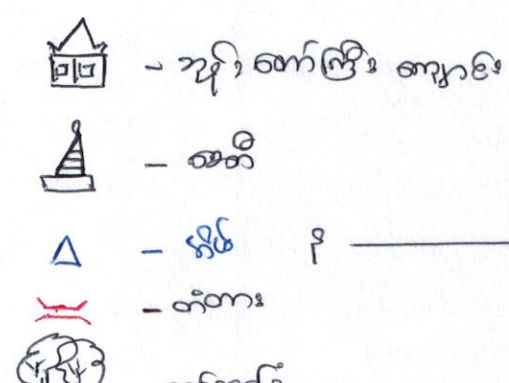 - ဘုန်းတော်ကြီးကျောင်း
- စေတီ
- အိမ် ၃
- တံတား